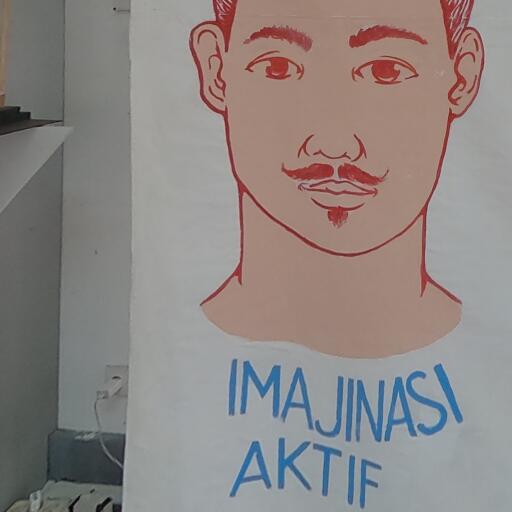 IMAJINASI
AKTIF